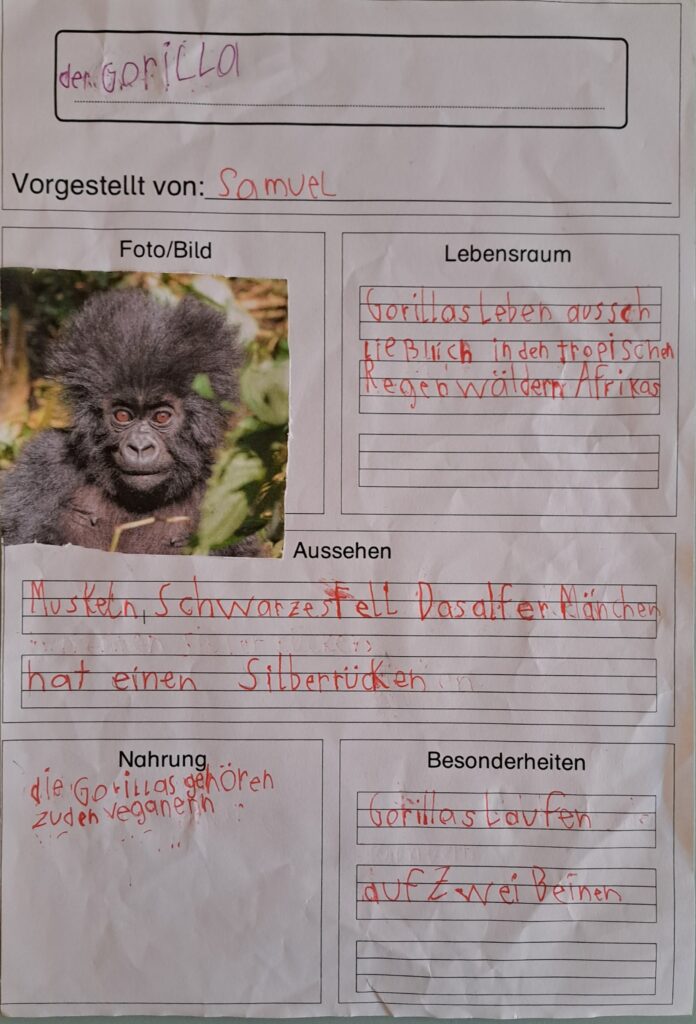 der GoriLLa
Vorgestellt von: SamueL
Foto/Bild
Lebensraum
Gorillas Leben aussch
ließlich in den tropischen
Regenwäldern Afrikas
Aussehen
Muskeln, Schwarzes Fell Das alfer Mänchen
hat einen Silberrücken
Nahrung
die Gorillas gehören
zu den veganern
Besonderheiten
Gorillas Laufen
auf Zwei Beinen